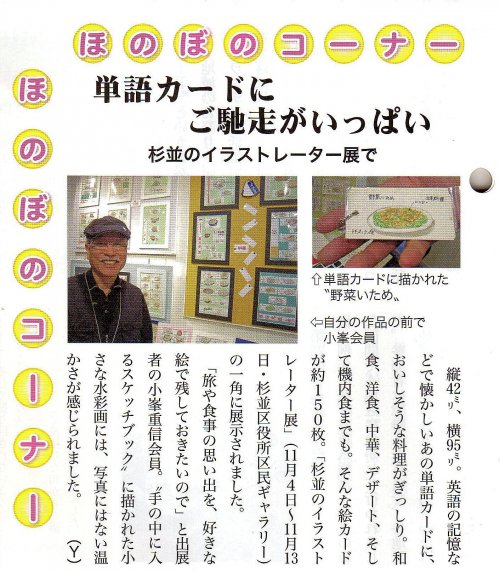 ほのぼのコーナー
ほのぼのコーナー
単語カードに
ご馳走がいっぱい
杉並のイラストレーター展で
野菜いため
⇧単語カードに描かれた
〝野菜いため〟
⇦自分の作品の前で
小峯会員
縦42㍉、横95㍉。英語の記憶な
どで懐かしいあの単語カードに、
おいしそうな料理がぎっしり。和
食、洋食、中華、デザート、そし
て機内食までも。そんな絵カード
が約150枚。「杉並のイラスト
レーター展」(11月4日〜11月13
日・杉並区役所区民ギャラリー)
の一角に展示されました。
「旅や食事の思い出を、好きな
絵で残しておきたいので」と出展
者の小峯重信会員。〝手の中に入
るスケッチブック〟に描かれた小
さな水彩画には、写真にはない温
かさが感じられました。 (Y)